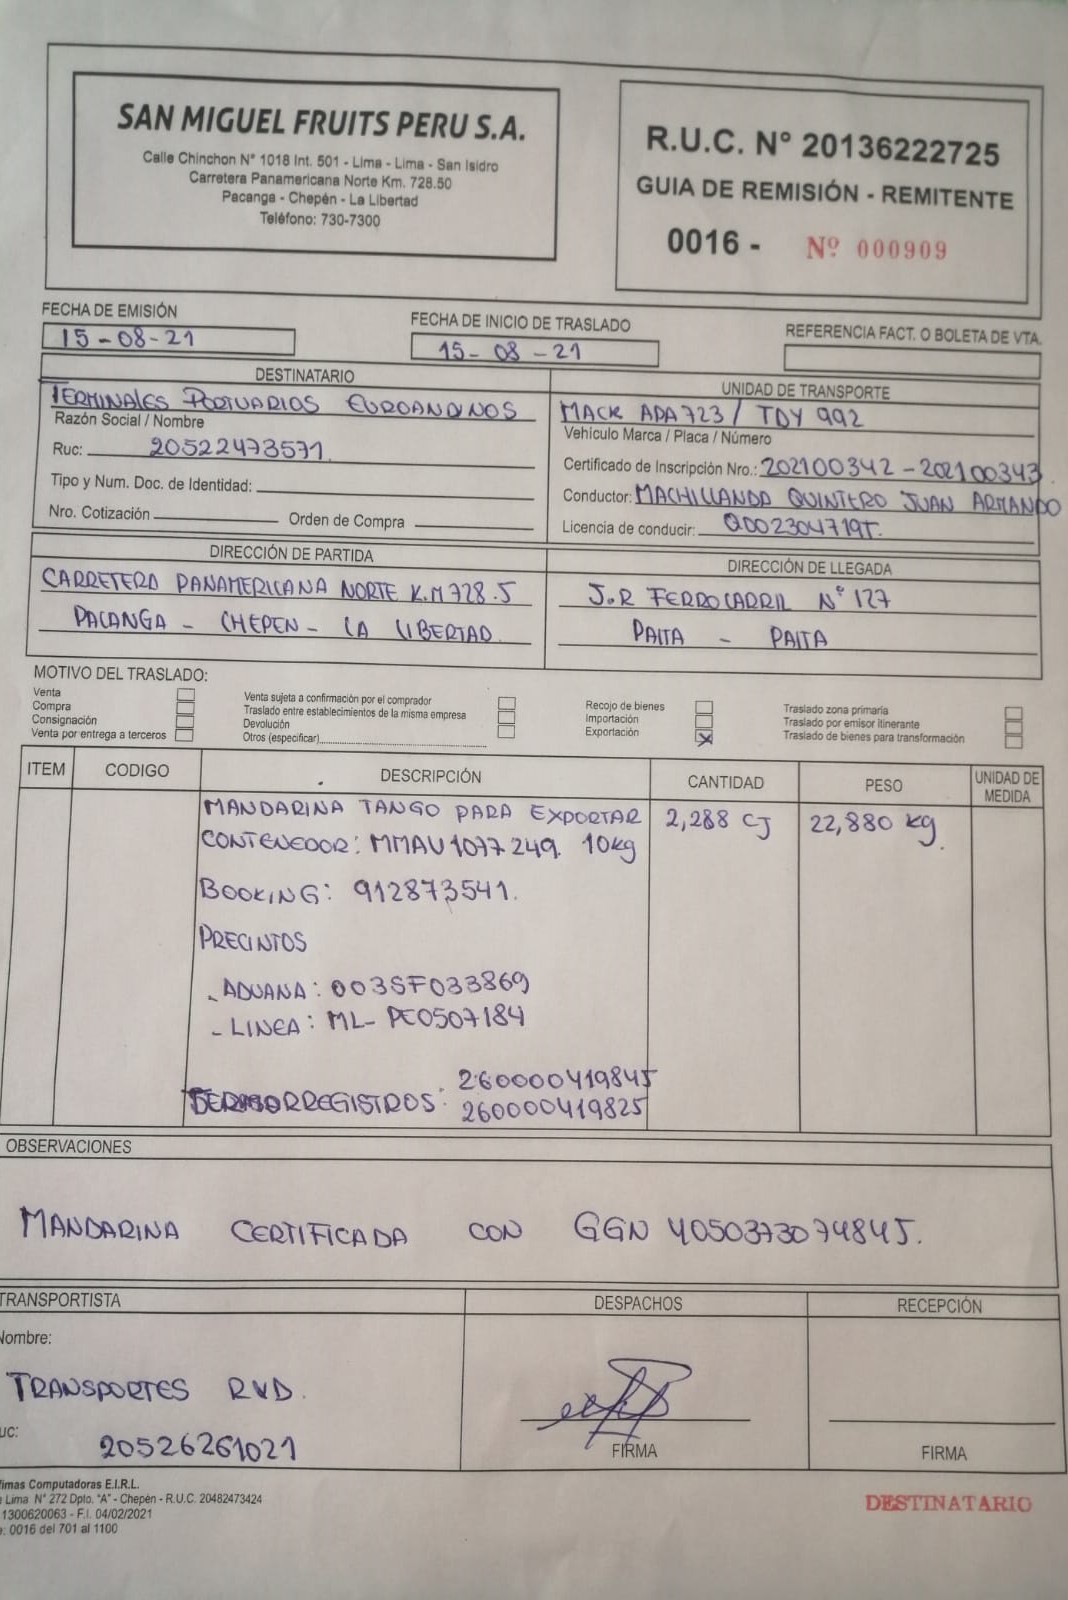 SAN MIGUEL FRUITS PERU S.A.
Calle Chinchon N° 1018 Int. 501 - Lima - Lima - San Isidro
Carretera Panamericana Norte Km. 728.50
Pacanga - Chepén - La Libertad
Teléfono: 730-7300
R.U.C. N° 20136222725
GUIA DE REMISIÓN - REMITENTE
0016 - Nº 000909
FECHA DE EMISIÓN
15-08-21
FECHA DE INICIO DE TRASLADO
15-08-21
REFERENCIA FACT. O BOLETA DE VTA.
DESTINATARIO
TERMINALES PORTUARIOS EUROANDINOS
Razón Social / Nombre
Ruc: 20522473571
Tipo y Num. Doc. de Identidad:
Nro. Cotización Orden de Compra
UNIDAD DE TRANSPORTE
MACK ADA723 / TDY 992
Vehículo Marca / Placa / Número
Certificado de Inscripción Nro.: 202100342 - 202100343
Conductor: MACHILLANDA QUINTERO JUAN ARMANDO
Licencia de conducir: Q002304719T.
DIRECCIÓN DE PARTIDA
CARRETERA PANAMERICANA NORTE K.M 728.5
PACANGA - CHEPEN - LA LIBERTAD
DIRECCIÓN DE LLEGADA
J.R FERROCARRIL N° 127
PAITA - PAITA
MOTIVO DEL TRASLADO:
Venta
Compra
Consignación
Venta por entrega a terceros
Venta sujeta a confirmación por el comprador
Traslado entre establecimientos de la misma empresa
Devolución
Otros (especificar)
Recojo de bienes
Importación
Exportación X
Traslado zona primaria
Traslado por emisor itinerante
Traslado de bienes para transformación
ITEM CODIGO DESCRIPCIÓN CANTIDAD PESO UNIDAD DE MEDIDA
MANDARINA TANGO PARA EXPORTAR 2,288 CJ 22,880 kg
CONTENEDOR: MMAU1077249. 10kg
BOOKING: 912873541.
PRECINTOS
- ADUANA: 003SF033869
- LINEA: ML-PE0507184
260000419845
REGISTROS: 260000419825
OBSERVACIONES
MANDARINA CERTIFICADA CON GGN 4050373074845.
TRANSPORTISTA
Nombre:
TRANSPORTES RVD.
uc: 20526261021
DESPACHOS
FIRMA
RECEPCIÓN
FIRMA
imas Computadoras E.I.R.L.
Lima N° 272 Dpto. "A" - Chepén - R.U.C. 20482473424
1300620063 - F.I. 04/02/2021
: 0016 del 701 al 1100
DESTINATARIO